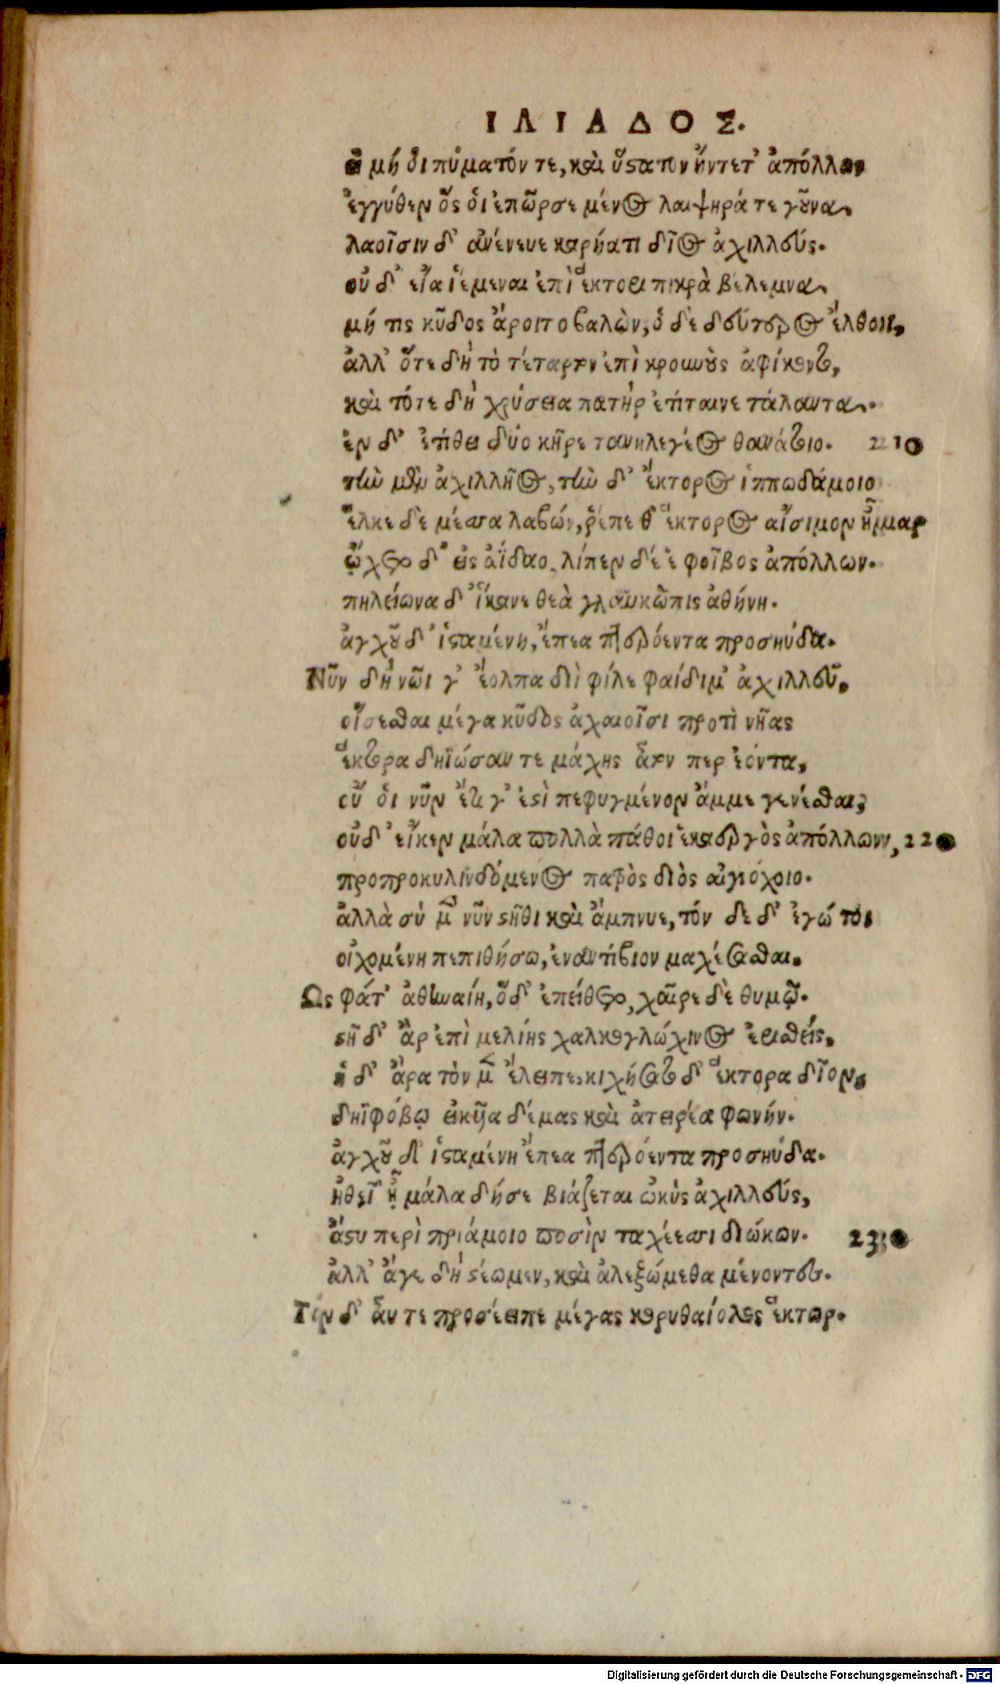 ΙΛΙΑΔΟΣ.
εἰ μή οἱ πύματόν τε, καὶ ὕστατον ἤντετ' ἀπόλλων
ἐγγύθεν ὅς οἱ ἐπῶρσε μένος λαιψηρά τε γοῦνα.
λαοῖσιν δ' ἀνένευε καρήατι δῖος ἀχιλλεύς.
οὐδ' εἴα ἱέμεναι ἐπὶ ἕκτορι πικρὰ βέλεμνα.
μή τις κῦδος ἄροιτο βαλὼν, ὁ δὲ δεύτερος ἔλθοι.
ἀλλ' ὅτε δὴ τὸ τέταρτον ἐπὶ κρουνοὺς ἀφίκοντο,
καὶ τότε δὴ χρύσεια πατὴρ ἐτίταινε τάλαντα.
ἐν δ' ἐτίθει δύο κῆρε τανηλεγέος θανάτοιο. 210
τὴν μὲν ἀχιλλῆος, τὴν δ' ἕκτορος ἱπποδάμοιο
ἕλκε δὲ μέσσα λαβών, ῥέπε δ' ἕκτορος αἴσιμον ἦμαρ
ᾤχετο δ' εἰς ἀΐδαο, λίπεν δέ ἑ φοῖβος ἀπόλλων.
πηλείωνα δ' ἵκανε θεὰ γλαυκῶπις ἀθήνη.
ἀγχοῦ δ' ἱσταμένη, ἔπεα πτερόεντα προσηύδα.
Νῦν δὴ νῶι γ' ἔολπα διὶ φίλε φαίδιμ' ἀχιλλεῦ,
οἴσεσθαι μέγα κῦδος ἀχαιοῖσι προτὶ νῆας
ἕκτορα δηϊώσαντε μάχης ἆτόν περ ἐόντα,
οὔ οἱ νῦν ἔτι γ' ἐστὶ πεφυγμένον ἄμμε γενέσθαι,
οὐδ' εἴκεν μάλα πολλὰ πάθοι ἑκάεργος ἀπόλλων, 220
προπροκυλινδόμενος πατρὸς διὸς αἰγιόχοιο.
ἀλλὰ σὺ μὲν νῦν στῆθι καὶ ἄμπνυε, τόν δε δ' ἐγώ τοι
οἰχομένη πεπιθήσω, ἐναντίβιον μαχέσασθαι.
Ὣς φάτ' ἀθηναίη, ὅ δ' ἐπείθετο, χαῖρε δὲ θυμῷ.
στῆ δ' ἂρ ἐπὶ μελίης χαλκογλώχινος ἐρεισθείς.
ἡ δ' ἄρα τὸν μὲν ἔλειπε, κιχήσατο δ' ἕκτορα δῖον,
δηϊφόβῳ εἰκυῖα δέμας καὶ ἀτειρέα φωνήν.
ἀγχοῦ δ' ἱσταμένη ἔπεα πτερόεντα προσηύδα.
ἠθεῖ' ἦ μάλα δή σε βιάζεται ὠκὺς ἀχιλλεύς,
ἄστυ περὶ πριάμοιο ποσὶν ταχέεσσι διώκων. 230
ἀλλ' ἄγε δὴ στέωμεν, καὶ ἀλεξώμεθα μένοντες.
Τὴν δ' αὖτε προσέειπε μέγας κορυθαίολος ἕκτωρ.
Digitalisierung gefördert durch die Deutsche Forschungsgemeinschaft - DFG